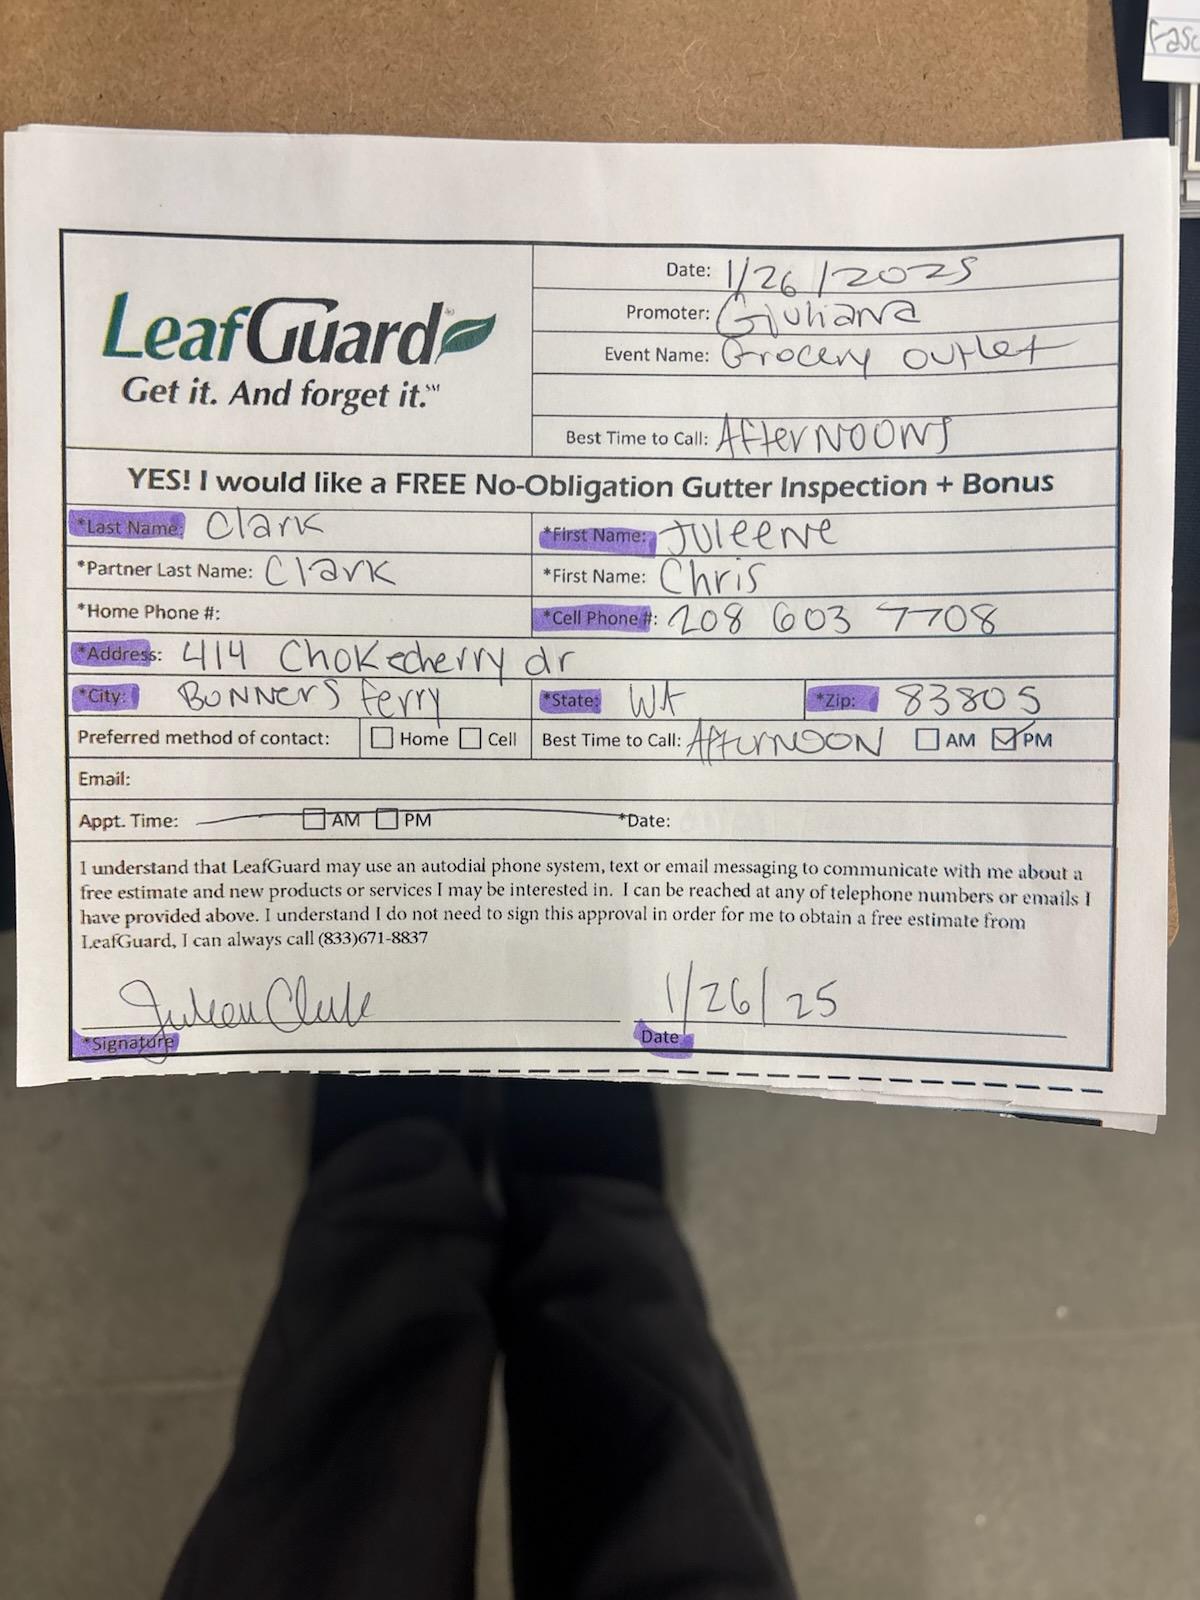 Fasc
LeafGuard®
Get it. And forget it.℠
Date: 1/26/2025
Promoter: Giuliana
Event Name: Grocery outlet
Best Time to Call: AfterNOONS
YES! I would like a FREE No-Obligation Gutter Inspection + Bonus
*Last Name: Clark *First Name: Juleene
*Partner Last Name: Clark *First Name: Chris
*Home Phone #: *Cell Phone #: 208 603 7708
*Address: 414 Chokecherry dr
*City: BONNERS ferry *State: WA *Zip: 83805
Preferred method of contact: Home Cell Best Time to Call: AfturNOON AM PM
Email:
Appt. Time: AM PM *Date:
I understand that LeafGuard may use an autodial phone system, text or email messaging to communicate with me about a
free estimate and new products or services I may be interested in. I can be reached at any of telephone numbers or emails I
have provided above. I understand I do not need to sign this approval in order for me to obtain a free estimate from
LeafGuard, I can always call (833)671-8837
1/26/25
*Signature Date